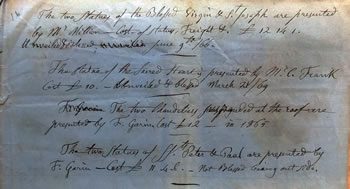 The two Statues of the Blessed Virgin & St. Joseph are presented
by Mr. – Cost of Statues, Freight &c. £ 12. 14. 1.
Unveiled & blessed June 9th/66.
The Statue of the Sacred Heart is presented by Mr. C. Frank
Cost £ 10. – Unveiled & blessed March 21/69
The two Chandeliers at the roof are
presented by F. Garin Cost £ 12 – in 1865
The two Statues of SS. Peter & Paul are presented by
F. Garin – Cost £ 11. 4. 2. – Not Blessed